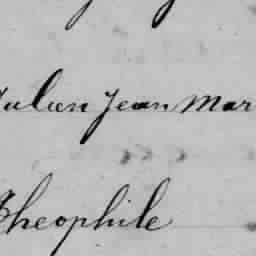 Julien Jean Mar
Theophile